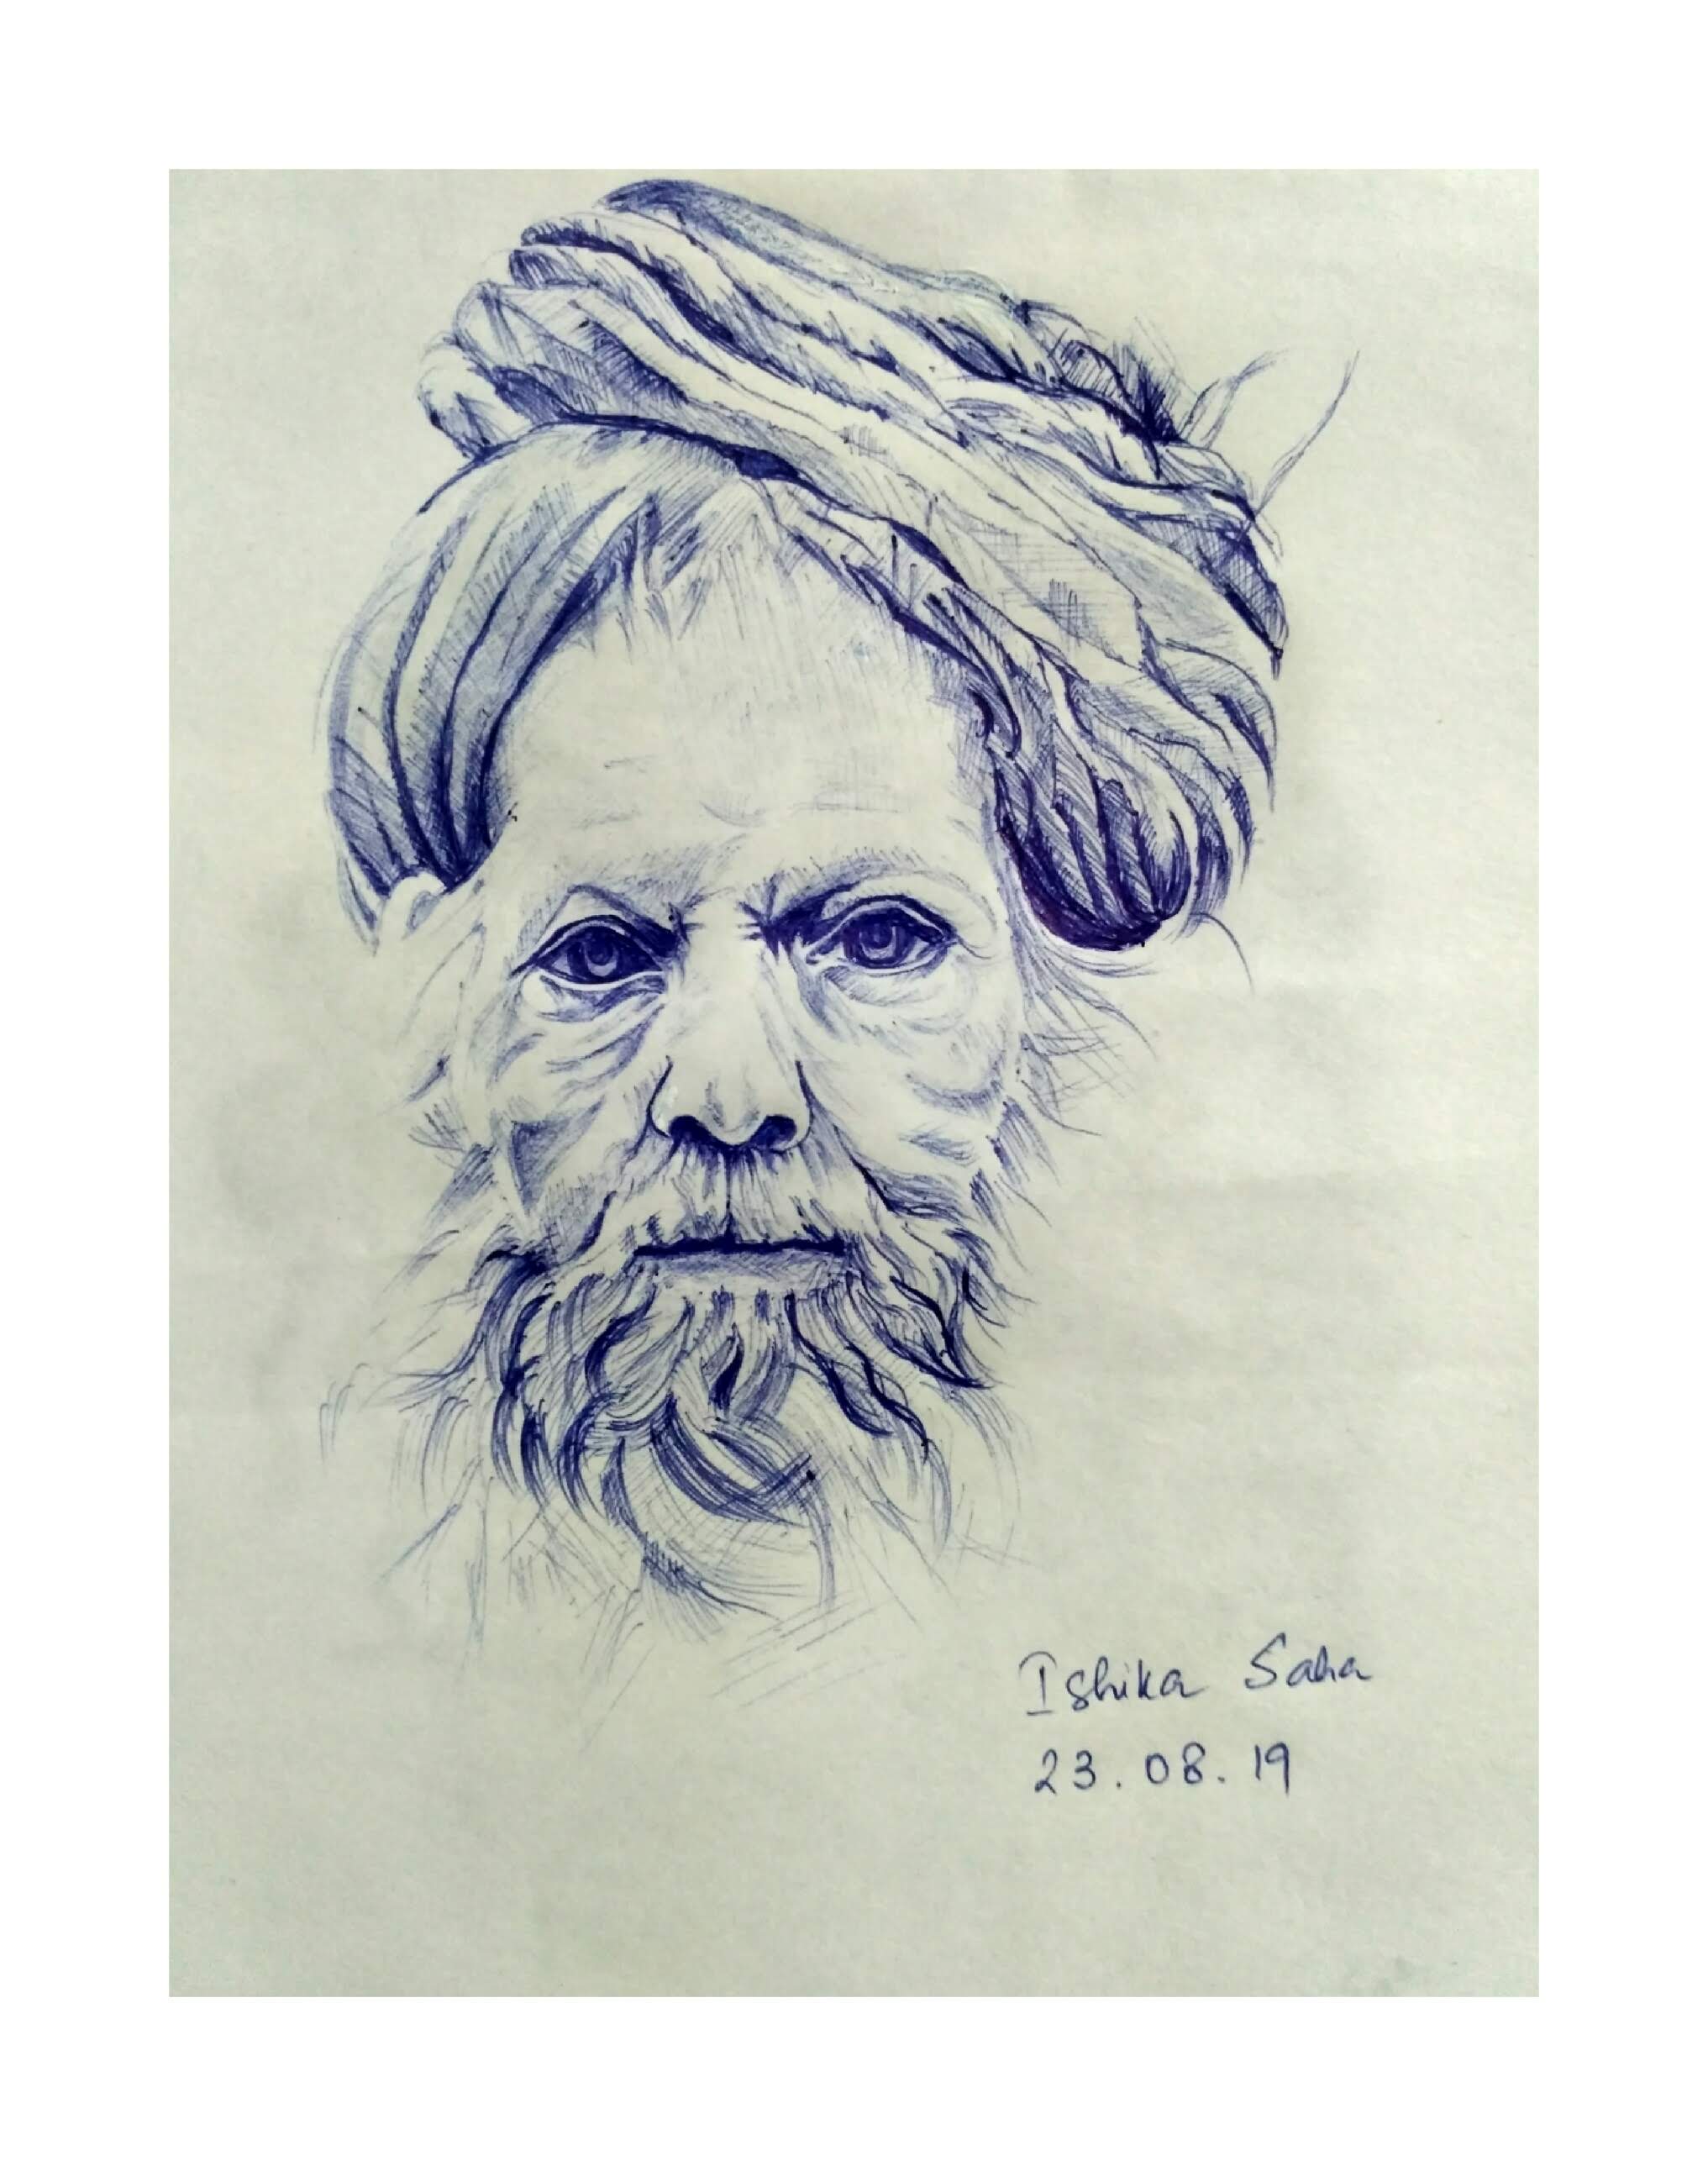 Ishika Saha
23.08.19